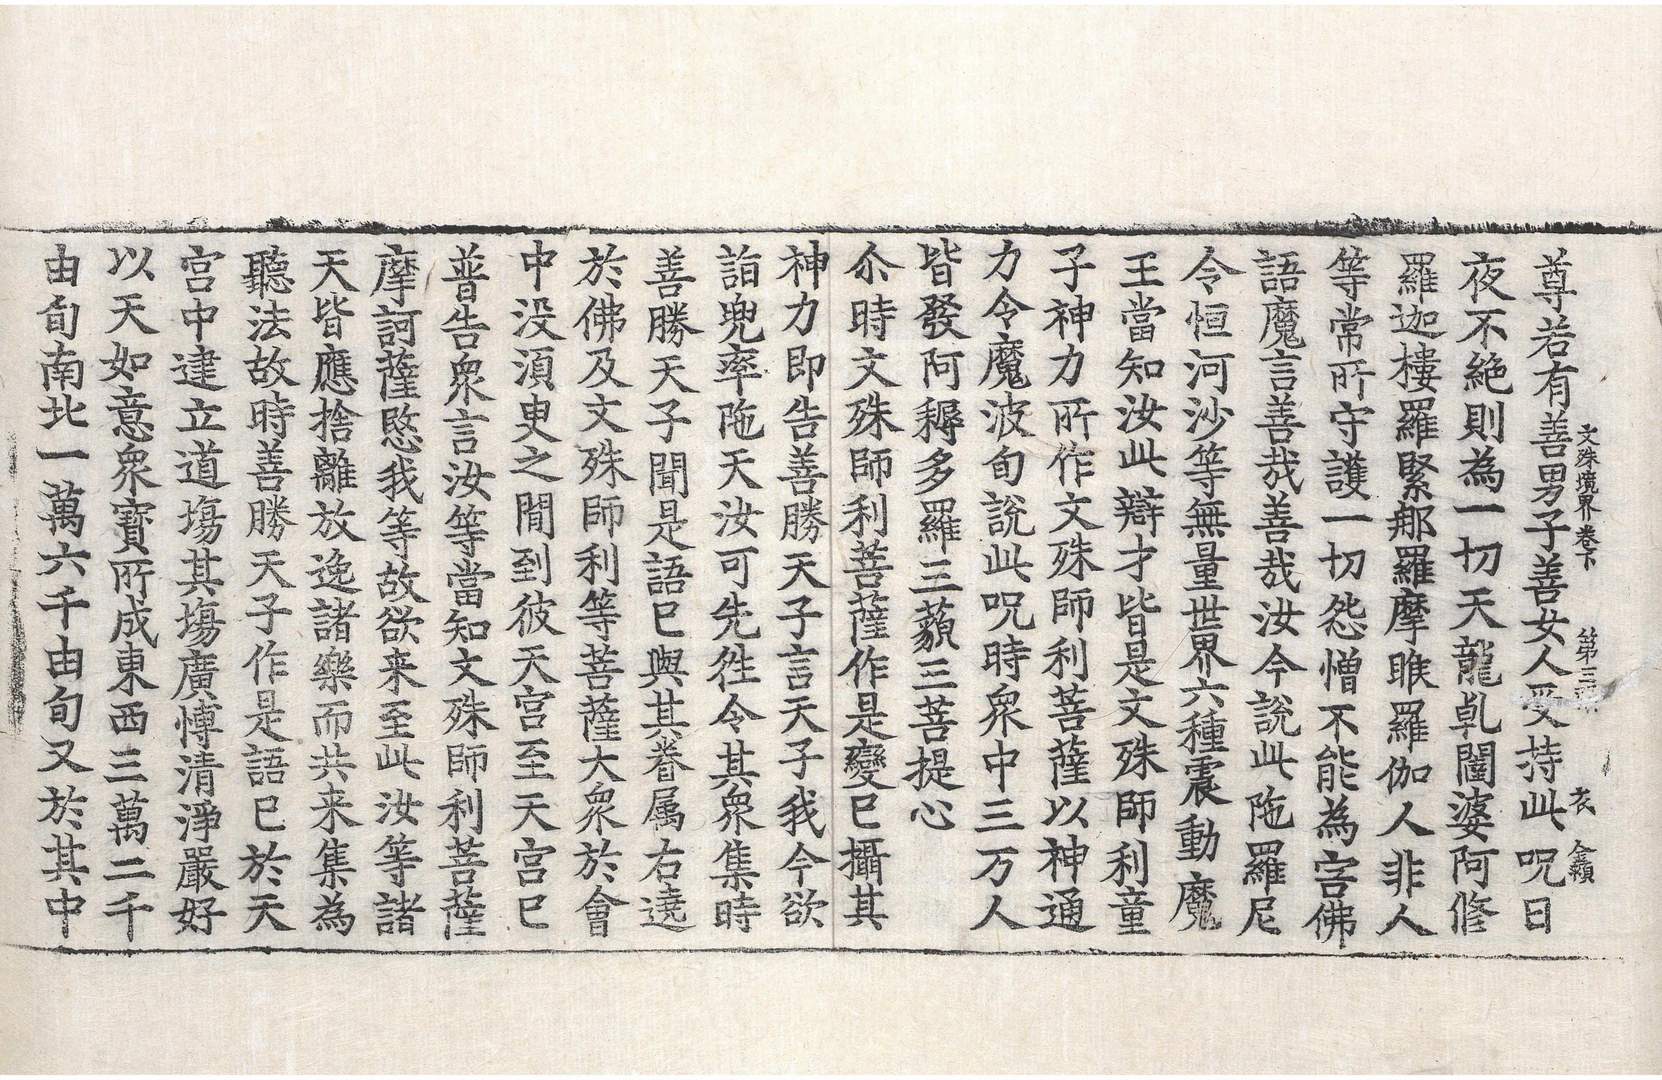 尊若有善男子善女人受持此呪日
文殊境界卷下 第三 衣 金䪺
夜不絶則為一切天龍乹闥婆阿修
羅迦樓羅緊那羅摩睺羅伽人非人
等常所守護一切怨憎不能為害佛
語魔言善哉善哉汝今說此陁羅尼
令恒河沙等無量世界六種震動魔
王當知汝此辯才皆是文殊師利童
子神力所作文殊師利菩薩以神通
力令魔波旬說此呪時衆中三万人
皆發阿耨多羅三藐三菩提心
尒時文殊師利菩薩作是變已攝其
神力即告善勝天子言天子我今欲
詣兜率陁天汝可先徃令其衆集時
善勝天子聞是語已與其眷属右遶
於佛及文殊師利等菩薩大衆於會
中没須臾之間到彼天宮至天宮已
普告衆言汝等當知文殊師利菩薩
摩訶薩愍我等故欲来至此汝等諸
天皆應捨離放逸諸樂而共来集為
聽法故時善勝天子作是語已於天
宮中建立道場其場廣博清淨嚴好
以天如意衆寶所成東西三萬二千
由旬南北一萬六千由旬又於其中